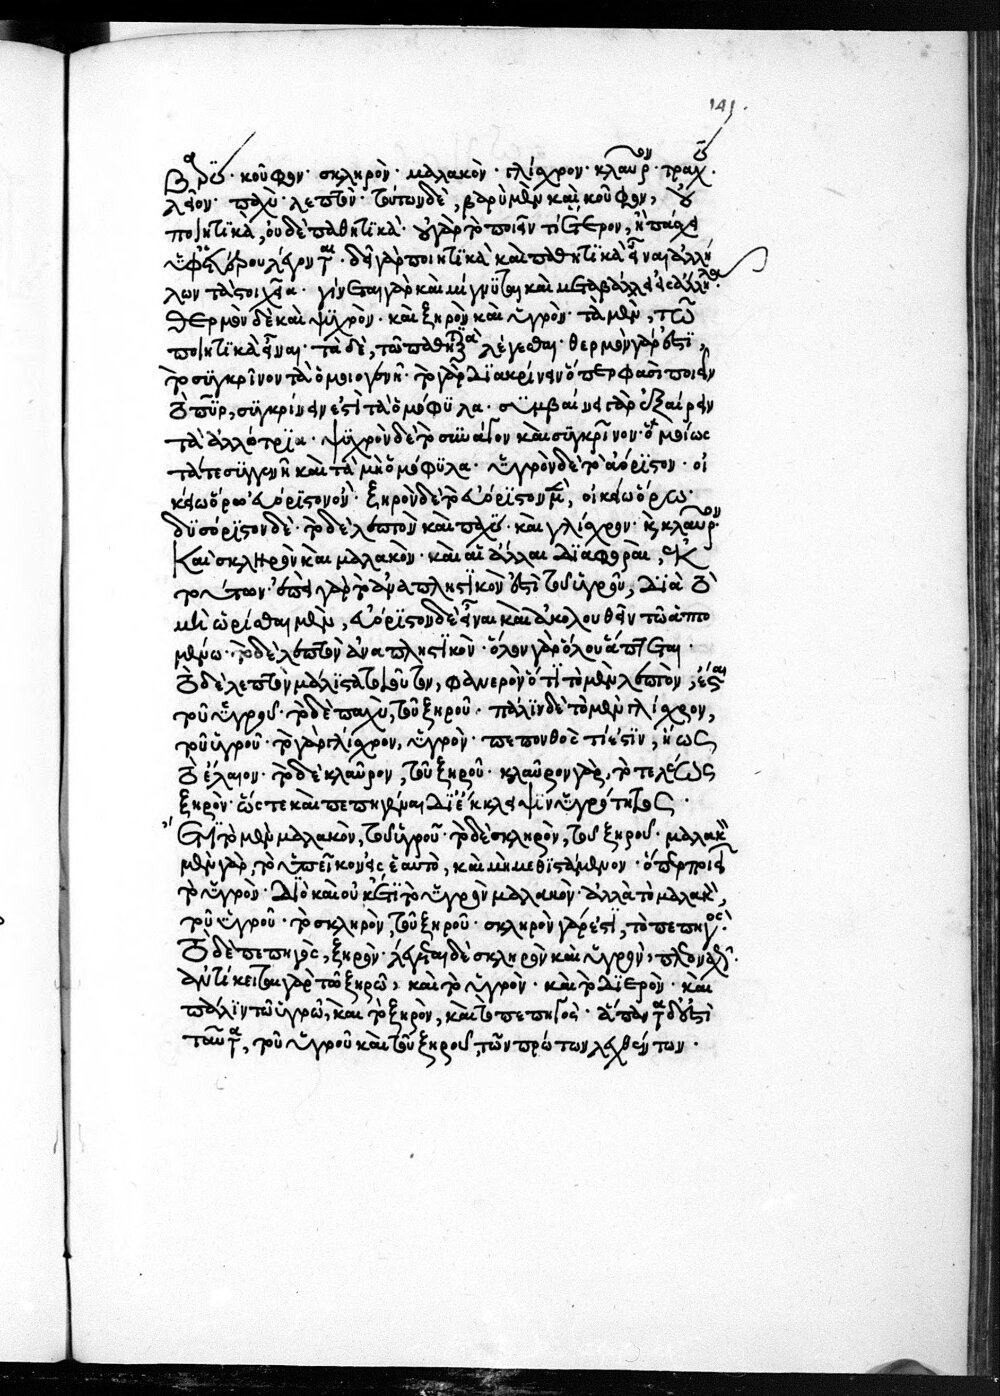 βαρὺ · κοῦφον · σκληρὸν · μαλακὸν · γλίσχρον · κλαῦρον · τραχὺ ·
λεῖον · παχὺ · λεπτὸν · τούτων δὲ, βαρὺ μὲν καὶ κοῦφον, οὐ
ποιητικὰ, οὐδὲ παθητικά · οὐ γὰρ τὸ ποιεῖν τι ἕτερον, ἢ πάσχειν
ὑφ' ἑτέρου λέγονται · δεῖ γὰρ ποιητικὰ καὶ παθητικὰ εἶναι ἀλλή
λων τὰ στοιχεῖα · γίνεται γὰρ καὶ μίγνυται καὶ μεταβάλλει εἰς ἄλληλα ·
θερμὸν δὲ καὶ ψυχρὸν · καὶ ξηρὸν καὶ ὑγρὸν · τὰ μὲν, τῶ
ποιητικὰ εἶναι · τὰ δὲ, τῶ παθητικὰ λέγεσθαι · θερμὸν γάρ ἐστι,
τὸ συγκρῖνον τὰ ὁμοιογενῆ · τὸ γὰρ διακρίνειν ὅπερ φασὶ ποιεῖν
τὸ πῦρ, συγκρίνειν ἐστὶ τὰ ὁμόφυλα · συμβαίνει γὰρ ἐξαίρειν
τὰ ἀλλότρια · ψυχρὸν δὲ τὸ συνάγον καὶ συγκρῖνον ὁμοίως
τά τε συγγενῆ καὶ τὰ μὴ ὁμόφυλα · ὑγρὸν δὲ τὸ ἀόριστον · οἰ
κείω ὅρω εὐόριστον ὄν · ξηρὸν δὲ τὸ εὐόριστον μὲν, οἰκείω ὅρω ·
δυσόριστον δέ · τὸ δὲ λεπτὸν καὶ παχὺ · καὶ γλίσχρον · καὶ κλαῦρον ·
καὶ σκληρὸν καὶ μαλακὸν · καὶ αἱ ἄλλαι διαφοραὶ, ἐκ
τούτων · ἐπεὶ γὰρ τὸ ἀναπληστικὸν ἐστὶ τοῦ ὑγροῦ, διὰ τὸ
μὴ ὡρίσθαι μὲν, εὐόριστον δὲ εἶναι καὶ ἀκολουθεῖν τῶ ἁπτο
μένω · τὸ δὲ λεπτὸν ἀναπληστικὸν · ὅλον γὰρ ὅλου ἅπτεται ·
τὸ δὲ λεπτὸν μάλιστα τοιοῦτον, φανερὸν ὅτι τὸ μὲν λεπτὸν, ἔσται
τοῦ ὑγροῦ · τὸ δὲ παχὺ, τοῦ ξηροῦ · πάλιν δὲ τὸ μὲν γλίσχρον,
τοῦ ὑγροῦ · τὸ γὰρ γλίσχρον, ὑγρὸν · πεπονθός τί ἐστιν, ὡς
τὸ ἔλαιον · τὸ δὲ κλαῦρον, τοῦ ξηροῦ · κλαῦρον γὰρ, τὸ τελέως
ξηρὸν · ὥστε καὶ πεπηγέναι δι' ἔκκλειψιν ὑγρότητος ·
ἔτι τὸ μὲν μαλακὸν, τοῦ ὑγροῦ · τὸ δὲ σκληρὸν, τοῦ ξηροῦ · μαλακὸν
μὲν γὰρ, τὸ ὑπεῖκον εἰς ἑαυτὸ, καὶ μὴ μεθιστάμενον · ὅπερ ποιεῖ
τὸ ὑγρὸν · διὸ καὶ οὐκ ἔστι τὸ ὑγρὸν μαλακὸν · ἀλλὰ τὸ μαλακὸν,
τοῦ ὑγροῦ · τὸ σκληρὸν, τοῦ ξηροῦ · σκληρὸν γάρ ἐστι, τὸ πεπηγός ·
τὸ δὲ πεπηγὸς, ξηρὸν · λέγεται δὲ σκληρὸν καὶ ὑγρὸν, πλεοναχῶς ·
ἀντίκειται γὰρ τῶ ξηρῶ, καὶ τὸ ὑγρὸν · καὶ τὸ διερὸν · καὶ
πάλιν τῶ ὑγρῶ, καὶ τὸ ξηρὸν, καὶ τὸ πεπηγός · ἅπαντα δ' ἐστὶ
ταῦτα, τοῦ ὑγροῦ καὶ τοῦ ξηροῦ, τῶν πρώτων λεχθέντων ·